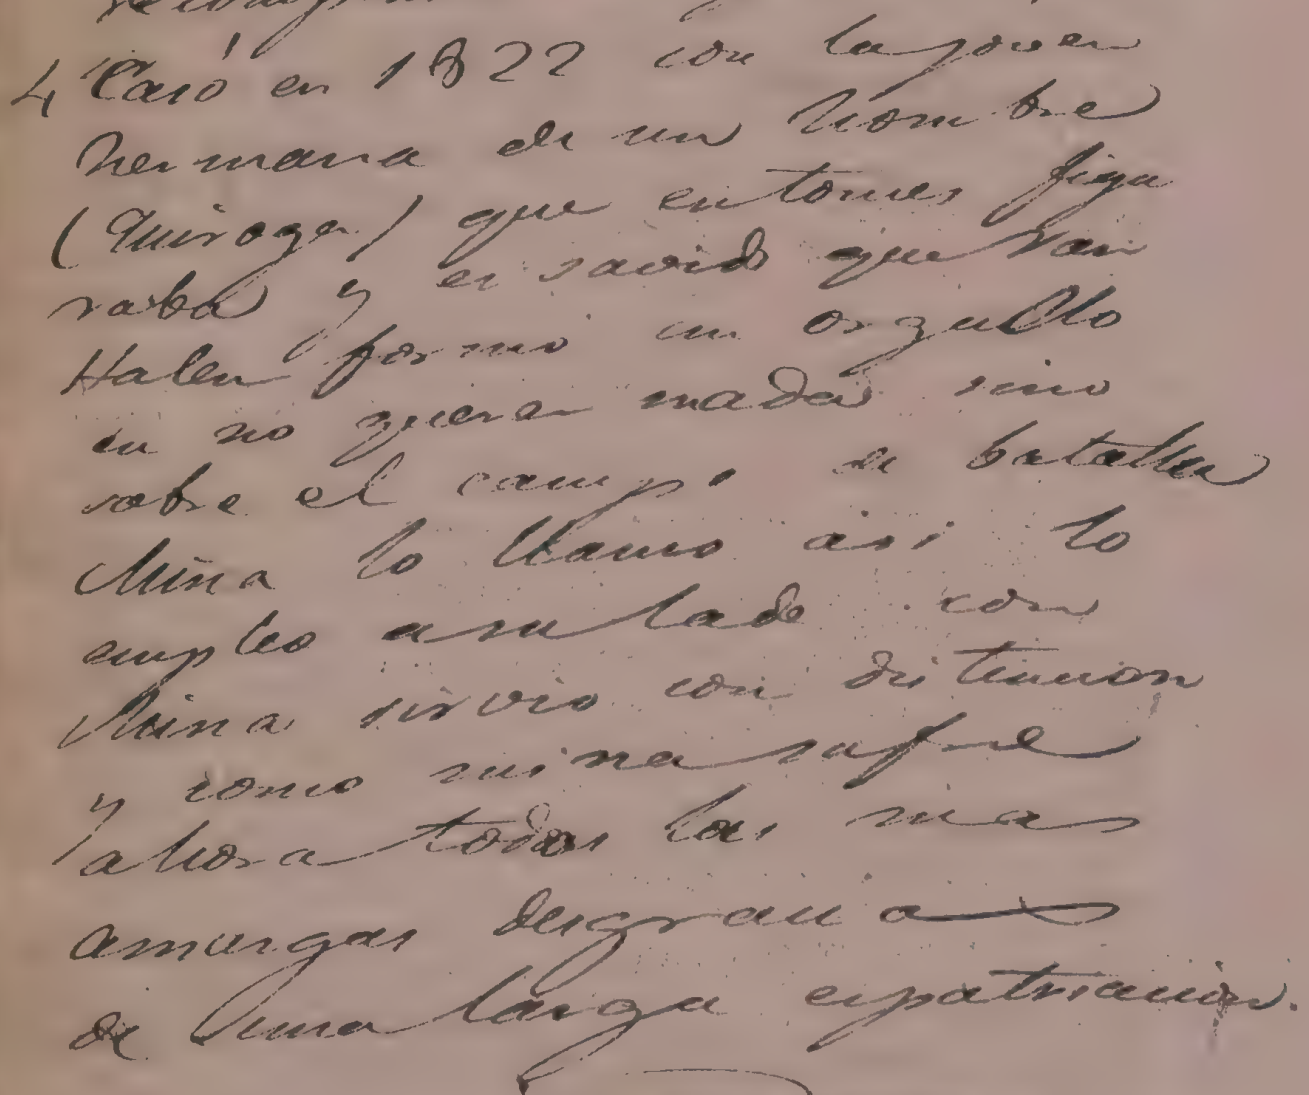 4 Casó en 1822 con la joven
hermana de un hombre
(Quiroga) que entonces figu
raba y es savido que Van
Halen formó un orgullo
en no querer mandar sino
sobre el campo de batalla
Mina lo llamo asi lo
empleo a su lado con
Mina sirvio con distincion
y como mina sufre
ahora todas las mas
amargas desgracias
de una larga expatriacion.